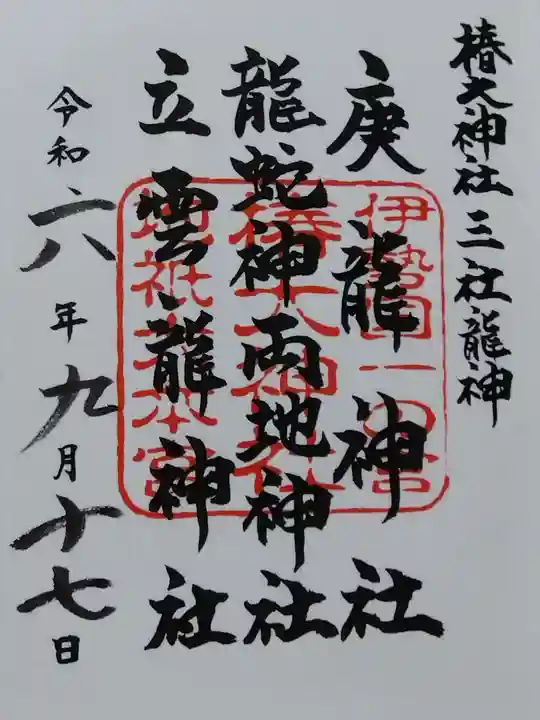 椿大神社三社龍神
庚龍神社
龍蛇神両地神社
立雲龍神社
令和六年九月十七日
伊勢国一の宮
椿大神社
地祇大本宮